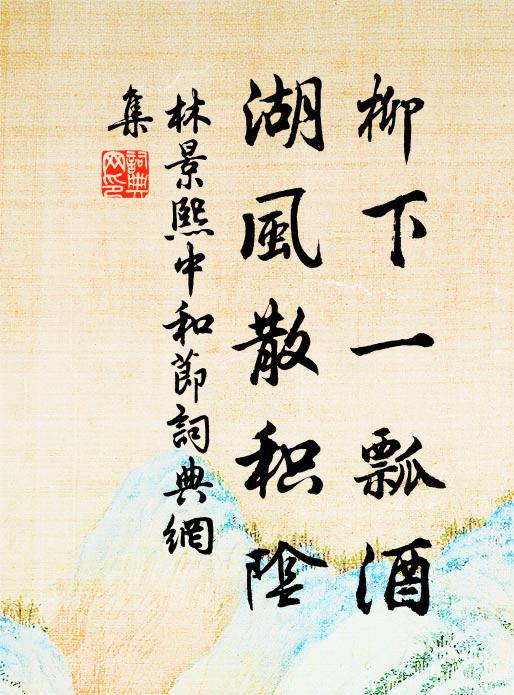 柳下一瓢酒
湖風散积陰
林景熙中和節詞典網
集
詞典网印